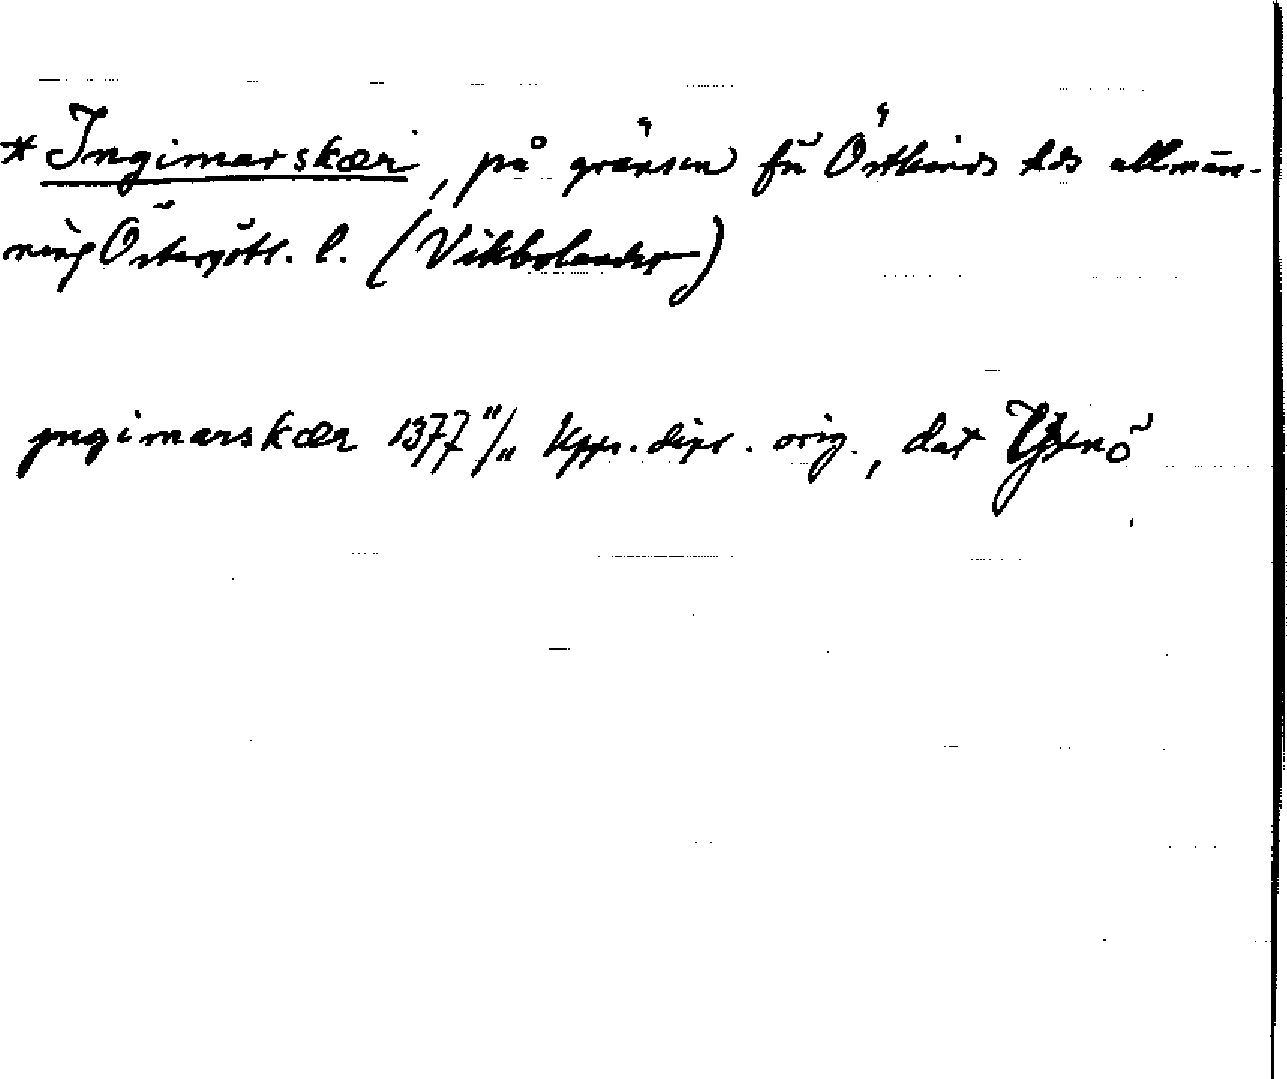 * Ingimarskær, på gränsen för Östkinds hds allmän-
ning Östergötl. l. (Vikbolandet)
yngimarskær 1377 11/11 Kpps. dipl. orig., dat